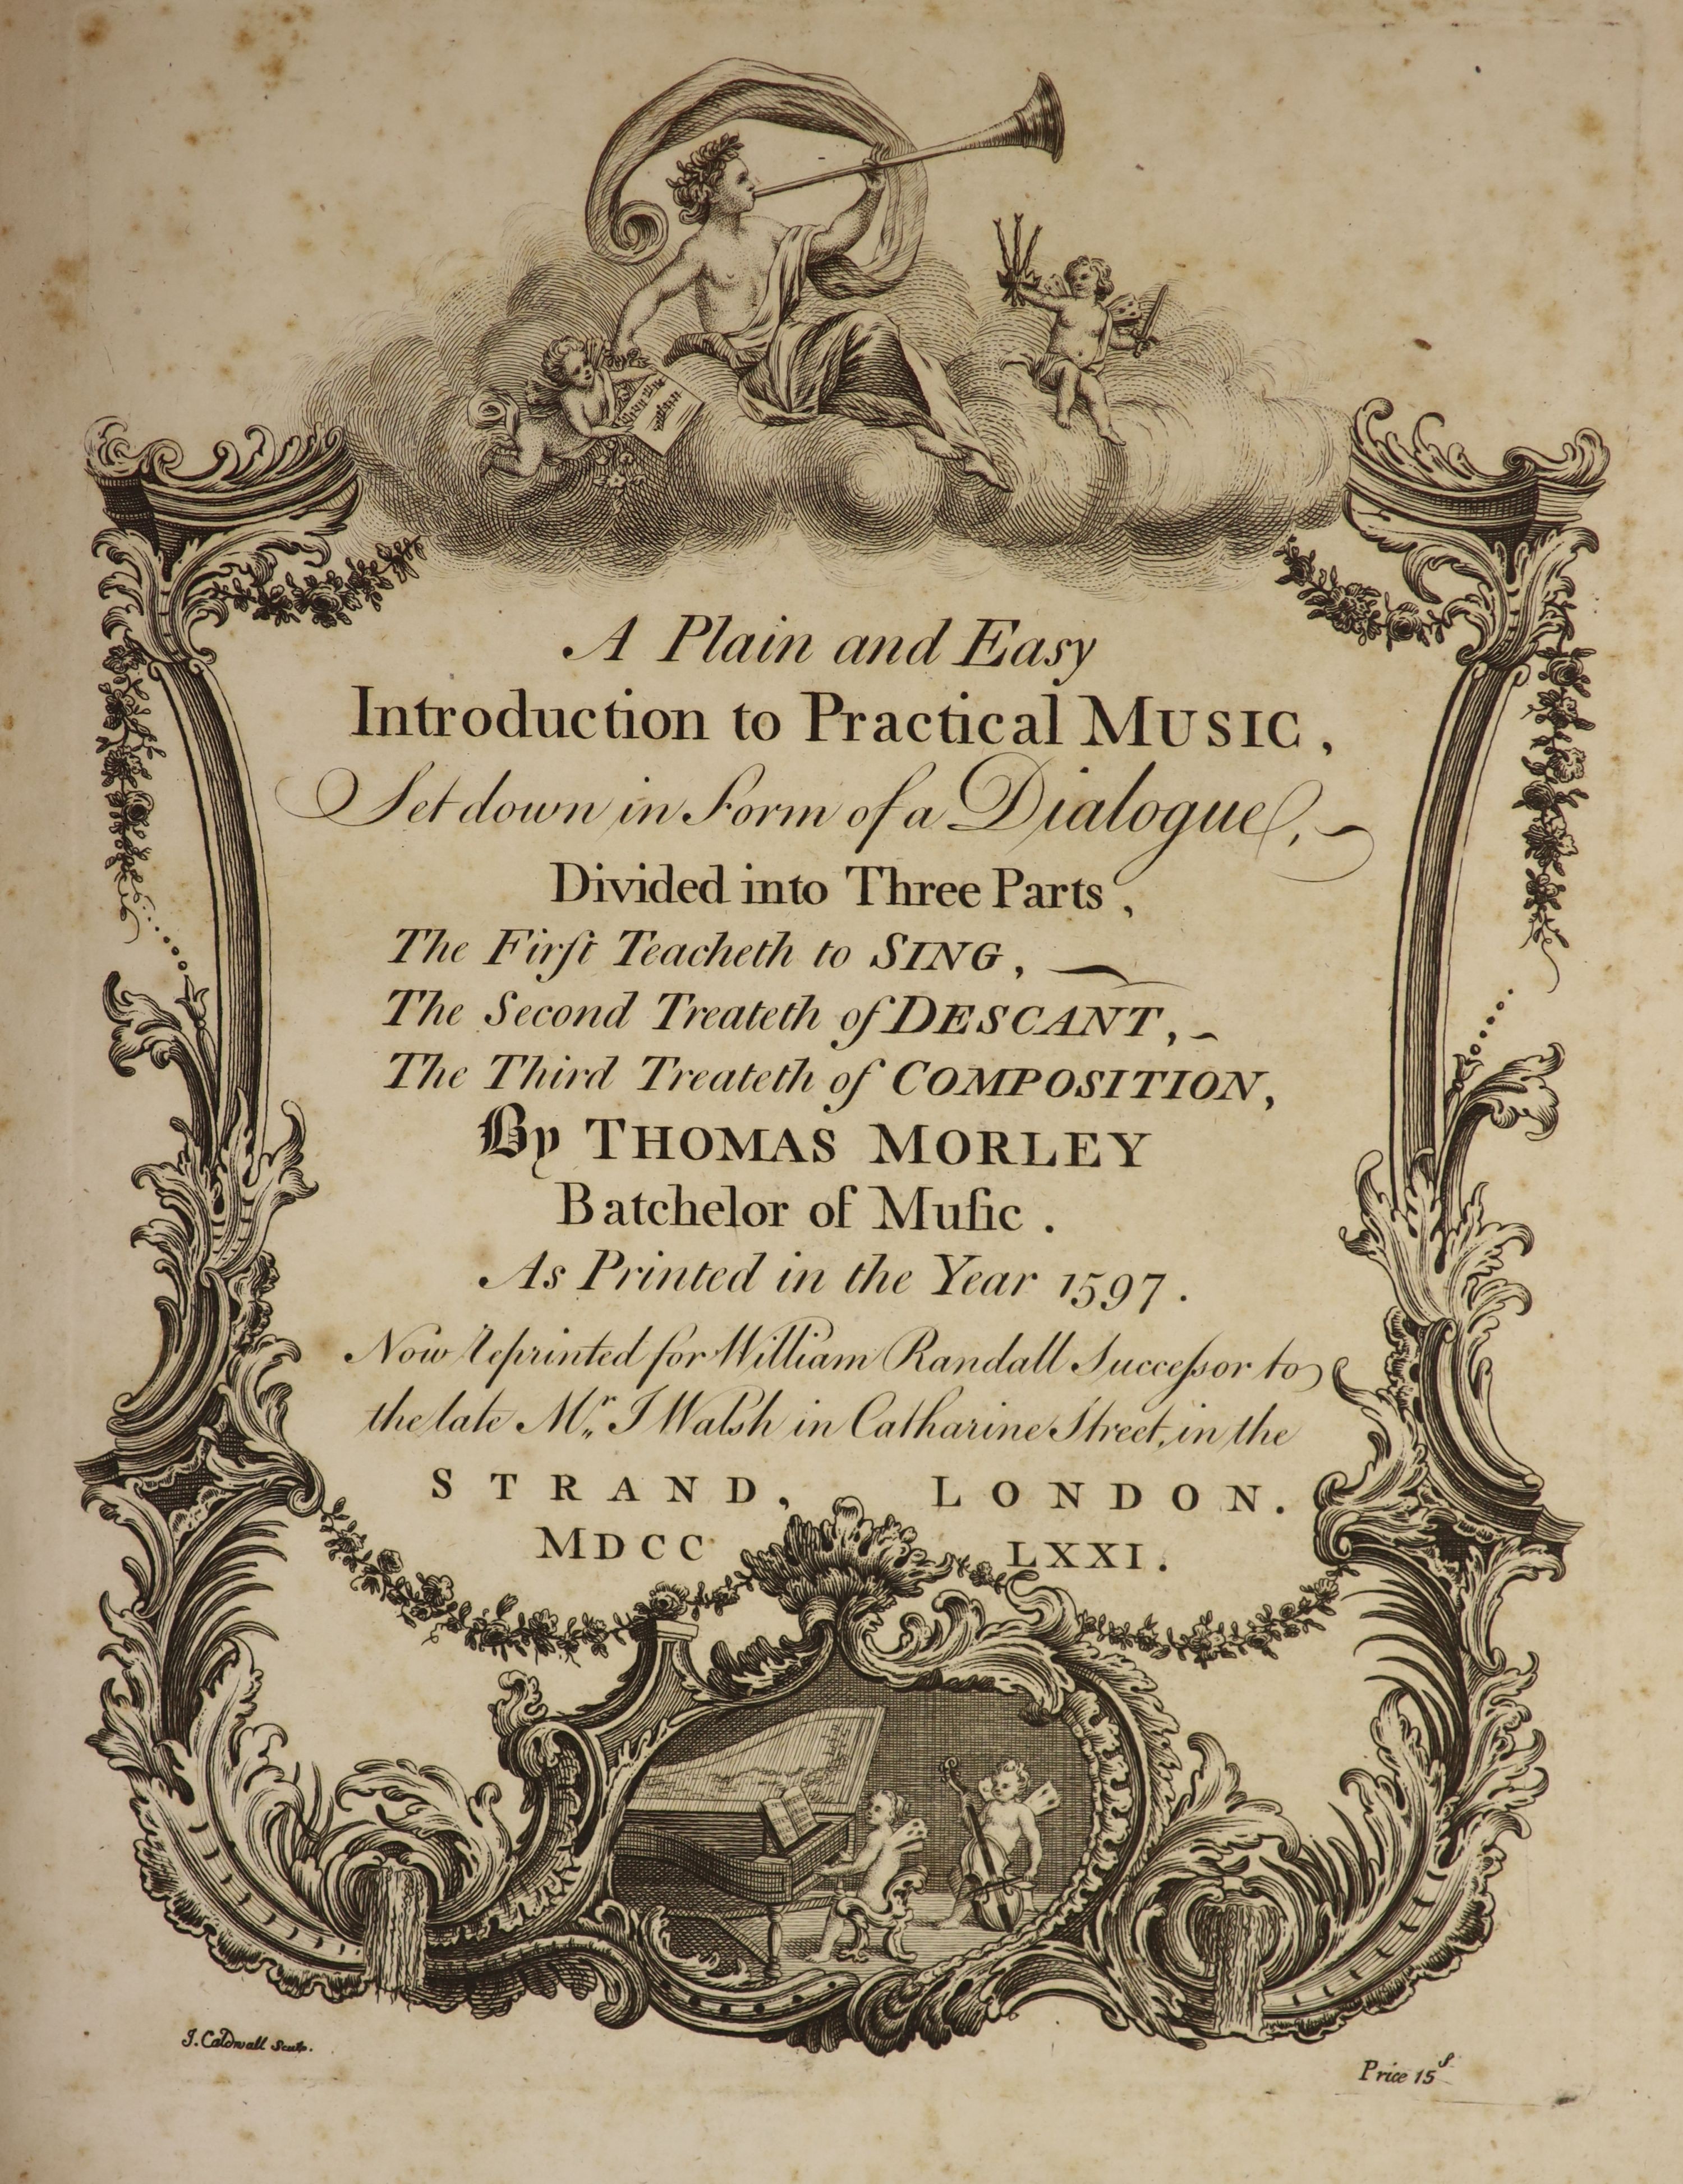 A Plain and Easy
Introduction to Practical MUSIC,
Set down in Form of a Dialogue,
Divided into Three Parts,
The Firſt Teacheth to SING,
The Second Treateth of DESCANT,
The Third Treateth of COMPOSITION,
By THOMAS MORLEY
Batchelor of Muſic.
As Printed in the Year 1597.
Now Reprinted for William Randall Succeſsor to
the late Mr. I Walsh in Catharine Street, in the
STRAND, LONDON.
MDCC LXXI.
J. Caldwall Sculp.
Price 15s